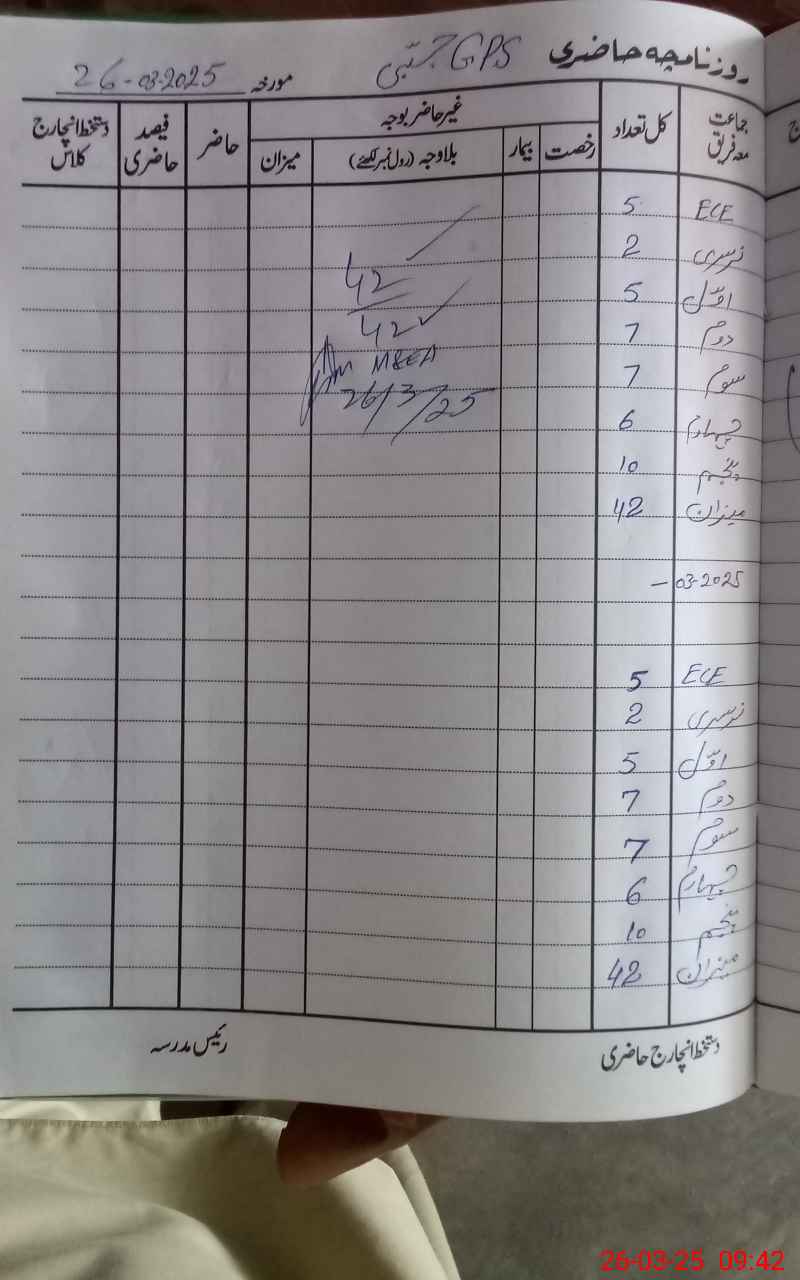 روزنامچہ حاضری GPS مورخہ 26-03-2025
جماعت معہ فریق کل تعداد غیر حاضر بوجہ حاضر فیصد حاضری دستخط انچارج کلاس
رخصت بیمار بلاوجہ (رول نمبر لکھئے) میزان
ECE 5
نرسری 2
اوّل 5
دوم 7
سوم 7
چہارم 6
پنجم 10
میزان 42
42
42
26/3/25
— 03-2025
ECE 5
نرسری 2
اوّل 5
دوم 7
سوم 7
چہارم 6
پنجم 10
میزان 42
دستخط انچارج حاضری رئیس مدرسہ
26-03-25 09:42